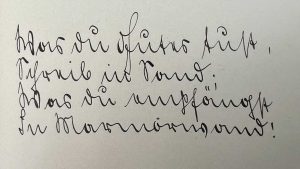 Was du Gutes tust,
Schreib in Sand;
Was du empfängst
In Marmorwand!